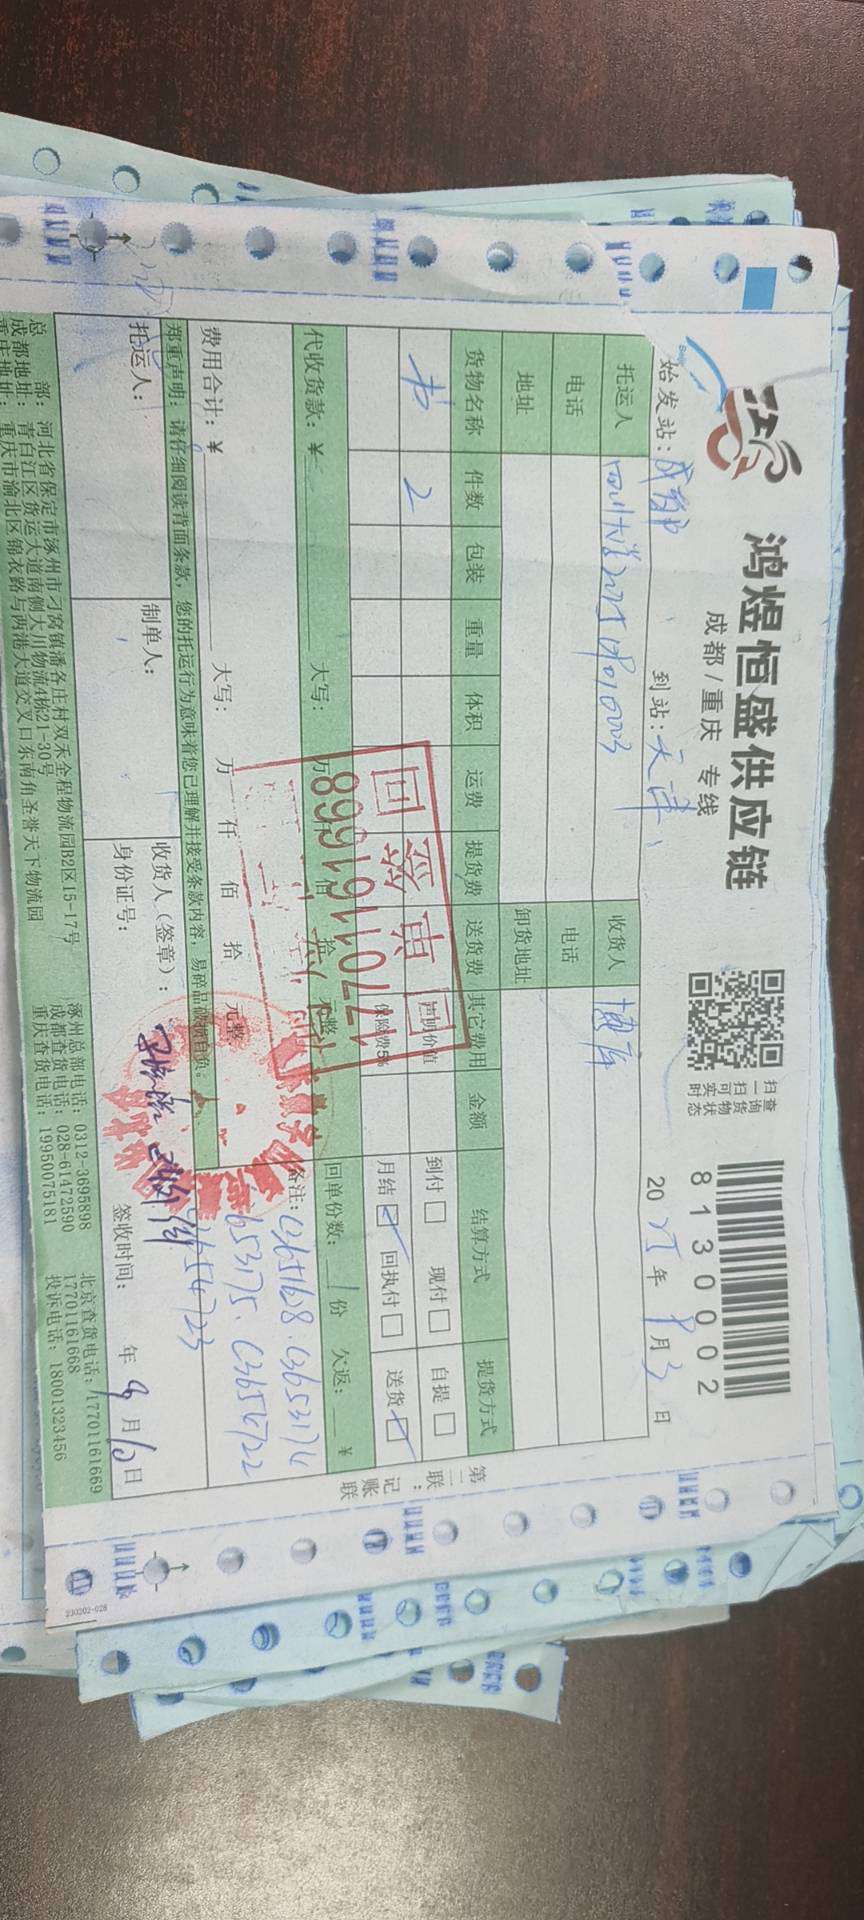 鸿煜恒盛供应链
成都/重庆 专线
扫一扫查询货物状态
8130002
始发站：成都 到站：天津 2025年9月3日
托运人 四川大学 收货人 博库
电话 电话
地址 卸货地址
货物名称 件数 包装 重量 体积 运费 提货费 送货费 其它费用 金额 结算方式 提货方式
书 2 声明价值 到付 现付 自提
保险费5‰ 月结 回执付 送货
代收货款：¥ 大写： 万 仟 佰 拾 元整 回单份数：1份 欠返： ¥
费用合计：¥ 大写： 万 仟 佰 拾 元整
备注：C3651628.C3653174
653175.C3654722
3654723
回签单
17701161668
郑重声明：请仔细阅读背面条款，您的托运行为意味着您已理解并接受条款内容，易碎品破损自负。
托运人： 制单人： 收货人（签章）： 签收时间： 年9月10日
身份证号：
总部：河北省保定市涿州市刁窝镇潘各庄村双禾全程物流园B2区15-17号 涿州总部电话：0312-3695898 北京查货电话：17701161669
成都地址：青白江区货运大道南侧大川物流4栋21-30号 成都查货电话：028-61472590 17701161668
重庆地址：重庆市渝北区锦衣路与两港大道交叉口东南角圣誉天下物流园 重庆查货电话：19950075181 投诉电话：18001323456
第二联：记账联
230202-028